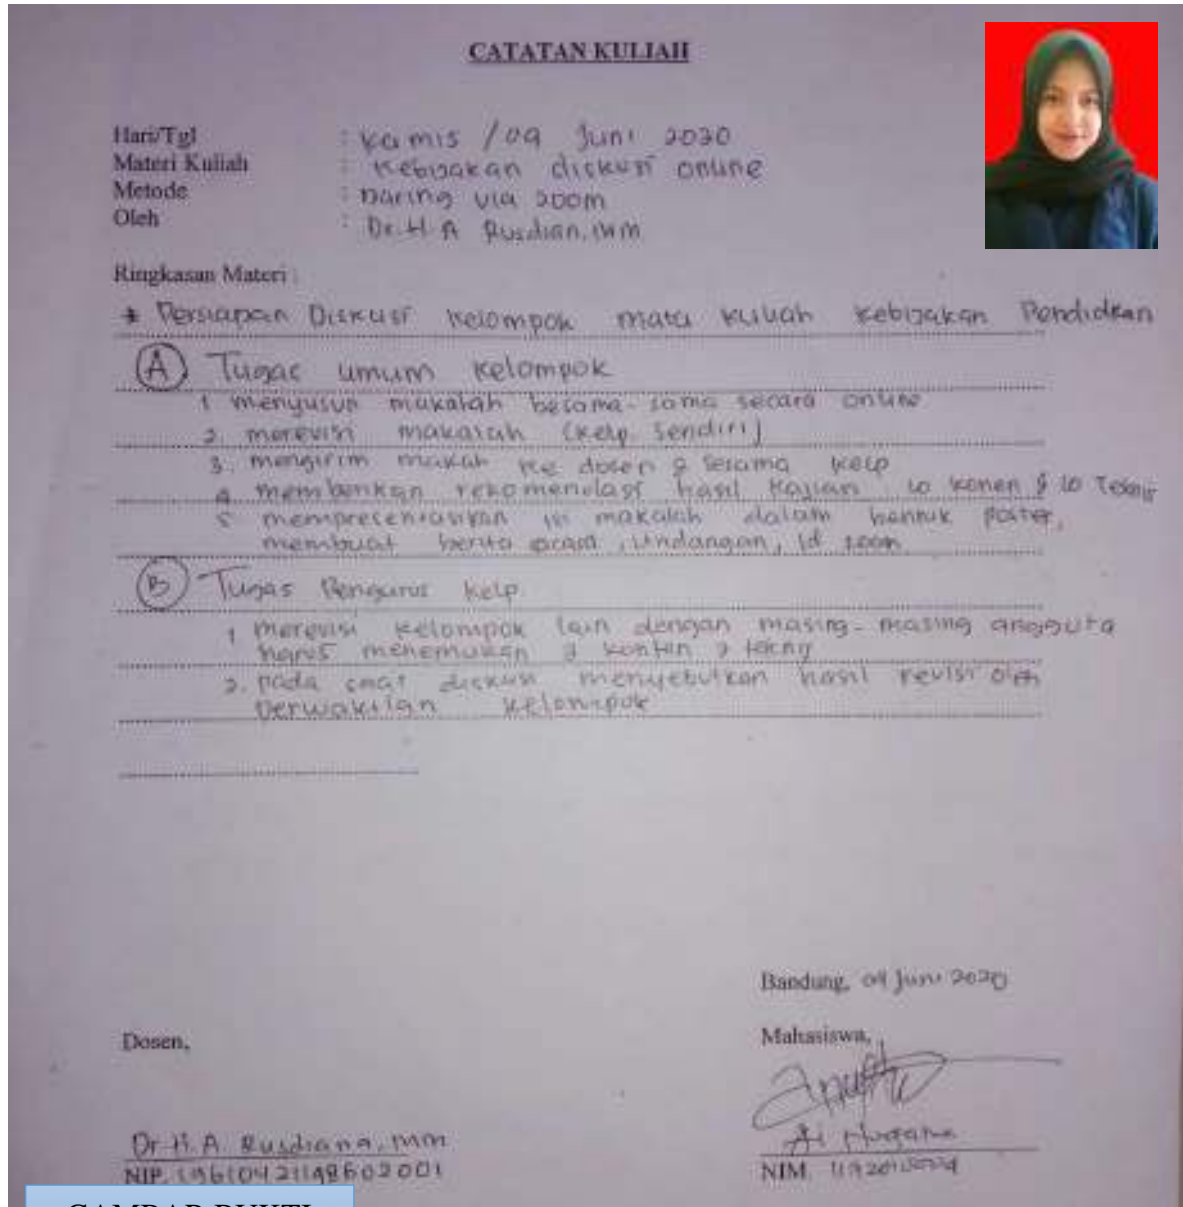 CATATAN KULIAH
Hari/Tgl : Kamis / 04 Juni 2020
Materi Kuliah : Kebijakan diskusi online
Metode : Daring via zoom
Oleh : Dr. H. A Rusdian, MM
Ringkasan Materi :
* Persiapan Diskusi kelompok mata kuliah kebijakan Pendidkan
(A) Tugas umum kelompok
1 menyusun makalah besama-sama secara online
2. merevisi makalah (kelp. sendiri)
3. mengirim makah ke dosen & sesama kelp
4 memberikan rekomendasi hasil kajian 10 konen & 10 Teknis
5 mempresentasikan isi makalah dalam bentuk poster,
membuat berita acara, undangan, id zoom
(B) Tugas Pengurus kelp
1 merevisi kelompok lain dengan masing-masing anggota
harus menemukan 2 konten 2 teknis
2. pada saat diskusi menyebutkan hasil revisi oleh
perwakilan kelompok
Bandung, 04 Juni 2020
Dosen,
Mahasiswa,
Dr. H. A. Rusdiana, MM
NIP. 19610421198602001
Ai
NIM.
GAMBAR BUKTI